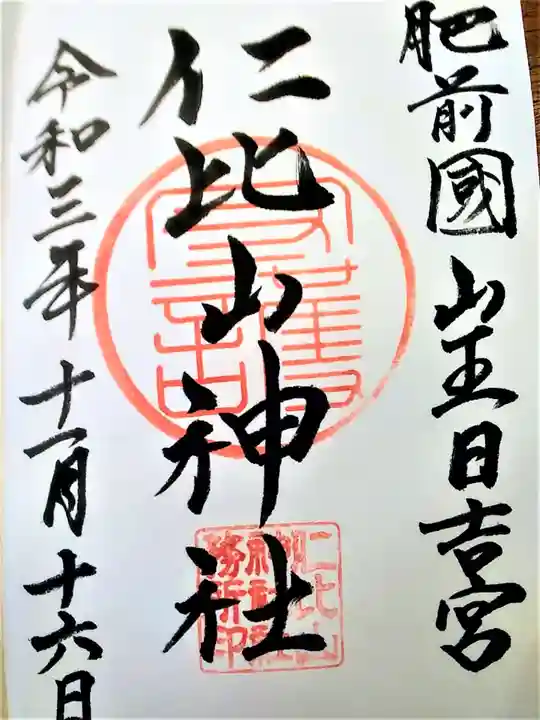 肥前國 山王日吉宮
仁比山神社
令和三年 十一月 十六日
仁比山
神社社
務所印